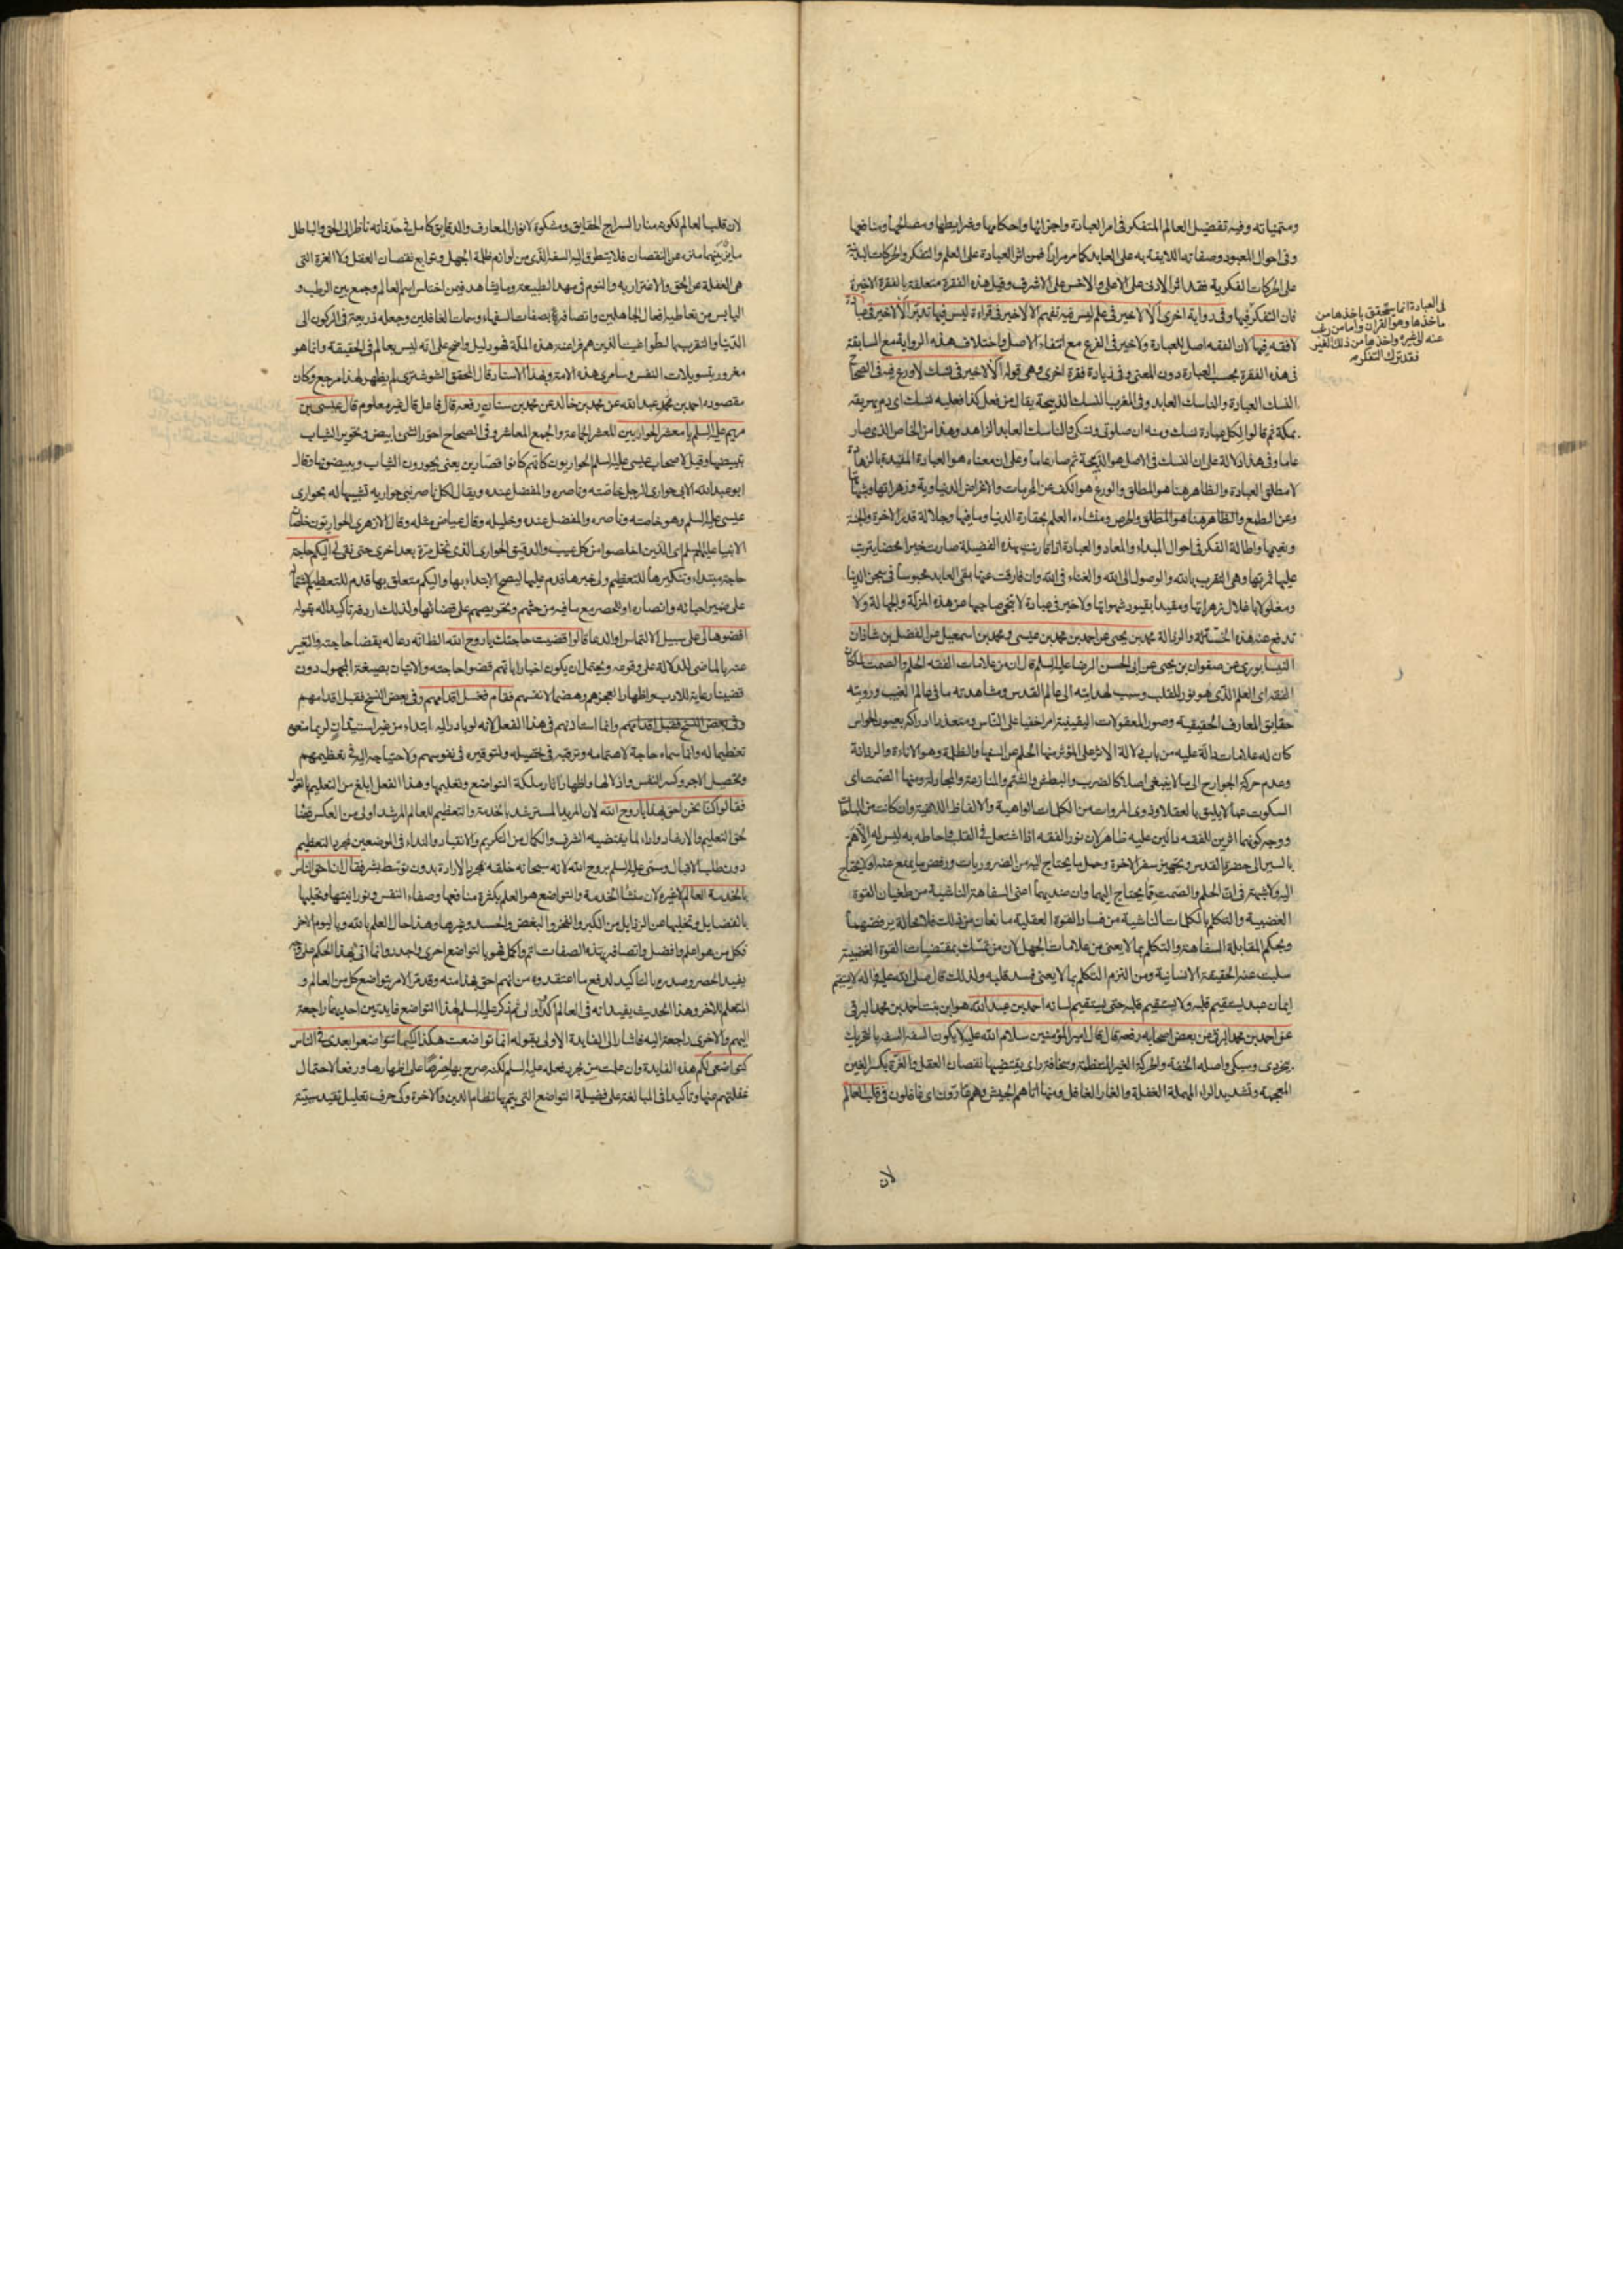 ومتمماته وفيه تفضيل العالم المتفكر في امر العبادة واجزائها واحكامها وشرايطها ومصالحها ومنافعها
وفي احوال المعبود وصفاته اللايقة به على العابد كما مر مرارا فمن اثر العبادة على العلم والتفكر والحركات البدنية
على الحركات الفكرية فقد اثر الادنى على الاعلى والاخس على الاشرف وقيل هذه الفقرة متعلقة بالفقرة الاخيرة
فان التفكر فيها وفي رواية اخرى الا لا خير في علم ليس فيه تفهم الا لا خير في قراءة ليس فيها تدبر الا لا خير في عبادة
لا فقه فيها لان الفقه اصل للعبادة ولا خير في الفرع مع انتفاء الاصل واختلاف هذه الرواية مع السابقة
في هذه الفقرة بحسب العبارة دون المعنى وفي زيادة فقرة اخرى وهي قوله الا لا خير في نسك لا ورع فيه في الصحاح
النسك العبادة والناسك العابد وفي المغرب النسك الذبيحة يقال من فعل كذا فعليه نسك اي دم يهريقه
بمكة ثم قالوا لكل عبادة نسك ومنه ان صلوتي ونسكي والناسك العابد الزاهد وهذا من الخاص الذي صار
عاما وفي هذا دلالة على ان النسك في الاصل هو الذبيحة ثم صار عاما وعلى ان معناه هو العبادة المقيدة بالزهادة
لا مطلق العبادة والظاهر هنا هو المطلق والورع هو الكف عن المحرمات والاغراض الدنياوية وزهراتها وشبهاتها
وعن الطمع والظاهر هنا هو المطلق والحرص ومنشاءه العلم بحقارة الدنيا وما فيها وجلالة قدر الاخرة والجنة
ونعيمها واطالة الفكر في احوال المبداء والمعاد والعبادة اذا قارنت بهذه الفضيلة صارت خيرا محضا يترتب
عليها ثمرتها وهي التقرب بالله والوصول الى الله والفناء في الله وان فارقت عنها بقي العابد محبوسا في سجن الدنيا
ومغلولا باغلال زهراتها ومقيدا بقيود شهواتها ولا خير في عبادة لا تنجي صاحبها من هذه المزلة والجهالة ولا
تدفع عنه هذه الخساسة والرذالة محمد بن يحيى عن احمد بن محمد بن عيسى ومحمد بن اسمعيل عن الفضل بن شاذان
النيسابوري عن صفوان بن يحيى عن ابي الحسن الرضا عليه السلم قال ان من علامات الفقه الحلم والصمت لما كان
الفقه اي العلم الذي هو نور للقلب وسبب لهدايته الى عالم القدس ومشاهدته ما في عالم الغيب ورويته
حقايق المعارف الحقيقية وصور المعقولات اليقينية امرا خفيا على الناس ومتعذرا ادراكه بعيون الحواس
كان له علامات دالة عليه من باب دلالة الاثر على المؤثر منها الحلم عن السفهاء والظلمة وهو الاناءة والرزانة
وعدم حركة الجوارح الى ما لا ينبغي اصلا كالضرب والبطش والشتم والمنازعة والمجادلة ومنها الصمت اي
السكوت عما لا يليق بالعقلاء وذوي المروات من الكلمات الواهية والالفاظ اللاغية وان كانت من المباحات
ووجه كونهما اثرين للفقه دالين عليه ظاهر لان نور الفقه اذا اشتعل في القلب واحاط به ليس له الا هم
بالسير الى حضرة القدس وتجهيز سفر الاخرة وحمل ما يحتاج اليه من الضروريات ورفض ما يمنع عنه او لا يحتاج
اليه ولا شبهة في ان الحلم والصمت مما يحتاج اليهما وان ضديهما اعني السفاهة الناشية من طغيان القوة
الغضبية والتكلم بالكلمات الناشية من فساد القوة العقلية مانعان من ذلك فلا محالة يرفضهما
وبحكم المقابلة السفاهة والتكلم بما لا يعني من علامات الجهل لان من تمسك بمقتضيات القوة الغضبية
سلبت عنه الحقيقة الانسانية ومن التزم التكلم بما لا يعني فسد قلبه ولذلك قال صلى الله عليه واله لا يستقيم
ايمان عبد يستقيم قلبه ولا يستقيم قلبه حتى يستقيم لسانه احمد بن عبد الله هو ابن بنت احمد بن محمد البرقي
عن احمد بن محمد البرقي عن بعض اصحابه رفعه قال قال امير المؤمنين سلام الله عليه لا يكون السفه السفه بالتحريك
واصله الخفة والحركة الغير المنتظمة وسخافة راى يقتضيها نقصان العقل والغرة بكسر الغين
المعجمة وتشديد الراء المهملة الغفلة والغار الغافل ومنها اتاهم الجيش وهم غارون اي غافلون في قلب العالم
لان
في العبادة انما يتحقق باخذها من
ماخذها وهو القران واما من رغب
عنه الى غيره واخذها من ذلك الغير
فقد ترك التفكر
لان قلب العالم لكونه منار السراج الحقايق ومشكوة لانوار المعارف والدقايق كامل في حد ذاته ناظر الى الحق والباطل
مايز بينهما منزه عن النقصان فلا يتطرق اليه السفه الذي من لوازم ظلمة الجهل وتوابع نقصان العقل ولا الغرة التي
هي الغفلة عن الحق والاغترار به والنوم في مهد الطبيعة وما يشاهد فيمن اختلس اسم العالم وجمع بين الرطب و
اليابس من تعاطيه افعال الجاهلين واتصافه بصفات السفهاء وسمات الغافلين وجعله ذريعة في الركون الى
الدنيا والتقرب بالطواغيت الذين هم فراعنة هذه الملة فهو دليل واضح على انه ليس بعالم في الحقيقة وانما هو
مغرور بتسويلات النفس وسامري هذه الامة وبهذا الاسناد قال المحقق الشوشتري لم يظهر لهذا مرجع وكان
مقصوده احمد بن محمد بن عبد الله عن محمد بن خالد عن محمد بن سنان رفعه قال فاعل قال غير معلوم قال عيسى بن
مريم عليه السلم يا معشر الحواريين المعشر الجماعة والجمع المعاشر وفي الصحاح احور الشئ ابيض وتحوير الثياب
تبييضها وقيل لاصحاب عيسى عليه السلم الحواريون كانهم كانوا قصارين يعني يحورون الثياب ويبيضونها وقال
ابو عبد الله الابي حواري الرجل خاصته وناصره والمفضل عنده ويقال لكل ناصر نبي حواريه تشبيها له بحواري
عيسى عليه السلم وهو خاصته وناصره والمفضل عنده وخليله وقال عياض مثله وقال الازهري الحواريون خلصان
الانبيا عليهم السلم اي الذين اخلصوا من كل عيب والدقيق الحواري الذي نخل مرة بعد اخرى حتى نقي لي اليكم حاجة
حاجة مبتداء وتنكيرها للتعظيم ولي خبرها قدم عليها ليصح الابتداء بها واليكم متعلق بها قدم للتعظيم لاشتماله
على ضمير احبائه وانصاره او للحصر مع ما فيه من حثهم وتحريصهم على قضائها ولذلك اردفه تاكيدا له بقوله
اقضوها لي على سبيل الالتماس او الدعا قالوا قضيت حاجتك يا روح الله الظ انه دعا له بقضا حاجته والتعبير
عنه بالماضي للدلالة على وقوعه ويحتمل ان يكون اخبارا بانهم قضوا حاجته والاتيان بصيغة المجهول دون
قضينا رعاية للادب واظهارا لعجزهم وهضما لانفسهم فقام فغسل اقدامهم وفي بعض النسخ فقبل اقدامهم
وفي بعض النسخ فقبل اقدامهم وانما استاذنهم في هذا الفعل لانه لو بادر اليه ابتداء من غير استيذان لربما منعوه
تعظيما له وانما سماه حاجة لاهتمامه وترغبه في تحصيله ولتوقيره في نفوسهم ولاحتياجه اليه في تعظيمهم
وتحصيل الاجر وكسر النفس واذلالها واظهار اثار ملكة التواضع وتعليمها وهذا الفعل ابلغ من التعليم بالقول
فقالوا كنا نحن احق بهذا يا روح الله لان المريد المسترشد بالخدمة والتعظيم للعالم المرشد اولى من العكس قضا
لحق التعليم والارشاد واداء لما يقتضيه الشرف والكمال من التكريم والانقياد والنداء في الموضعين لمجرد التعظيم
دون طلب الاقبال وسمي عليه السلم بروح الله لانه سبحانه خلقه بمجرد الارادة بدون توسط بشر فقال ان احق الناس
بالخدمة العالم لا غيره لان منشأ الخدمة والتواضع هو العلم بكثرة منافعها وصفاء النفس ونورانيتها وتحليها
بالفضايل وتخليها عن الرذايل من الكبر والفخر والبغض والحسد وغيرها وهذا حال العلم بالله وباليوم الاخر
فكل من هو اعلم وافضل واتصافه بهذه الصفات اتم واكمل فهو بالتواضع احرى واجدر وانما اتى بهذا الحكم على وجه
يفيد الحصر وصدره بالتاكيد لدفع ما اعتقدوه من انهم احق بهذا منه وقد مر الامر بتواضع كل من العالم و
المتعلم للاخر وهذا الحديث يفيد انه في العالم اكد واولى ثم ذكر عليه السلم لهذا التواضع فايدتين احديهما راجعة
اليهم والاخرى راجعة اليه فاشار الى الفايدة الاولى بقوله انما تواضعت هكذا لكيما تتواضعوا بعدي في الناس
كتواضعي لكم هذه الفايدة وان علمت من مجرد فعله عليه السلم لكنه صرح بها حرصا على اظهارها ورفعا لاحتمال
غفلتهم عنها وتاكيدا في المبالغة على فضيلة التواضع التي يتم بها نظام الدين والاخرة وكي حرف تعليل تفيد سببية